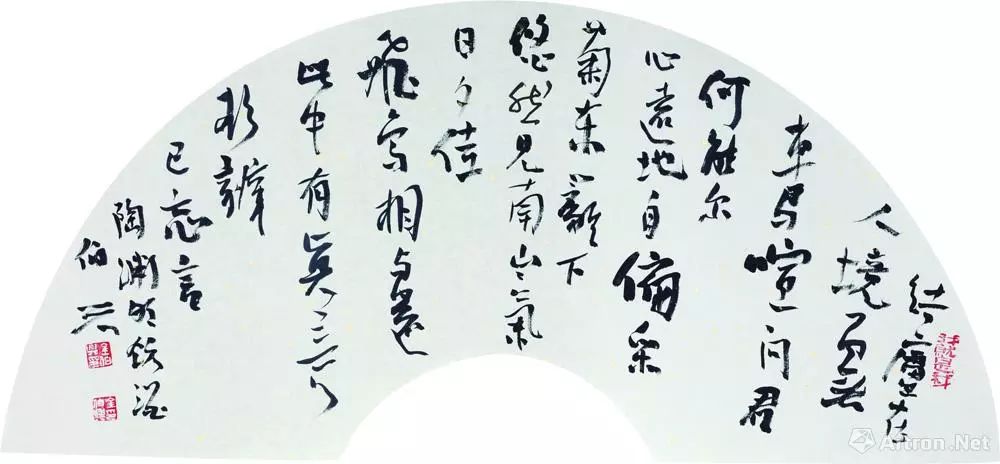 結廬在
人境而無
車馬喧問君
何能尔
心遠地自偏采
菊東籬下
悠然見南山々氣
日夕佳
飛鳥相与還
此中有真意
欲辯
已忘言
陶淵明飲酒
伯
Artron.Net